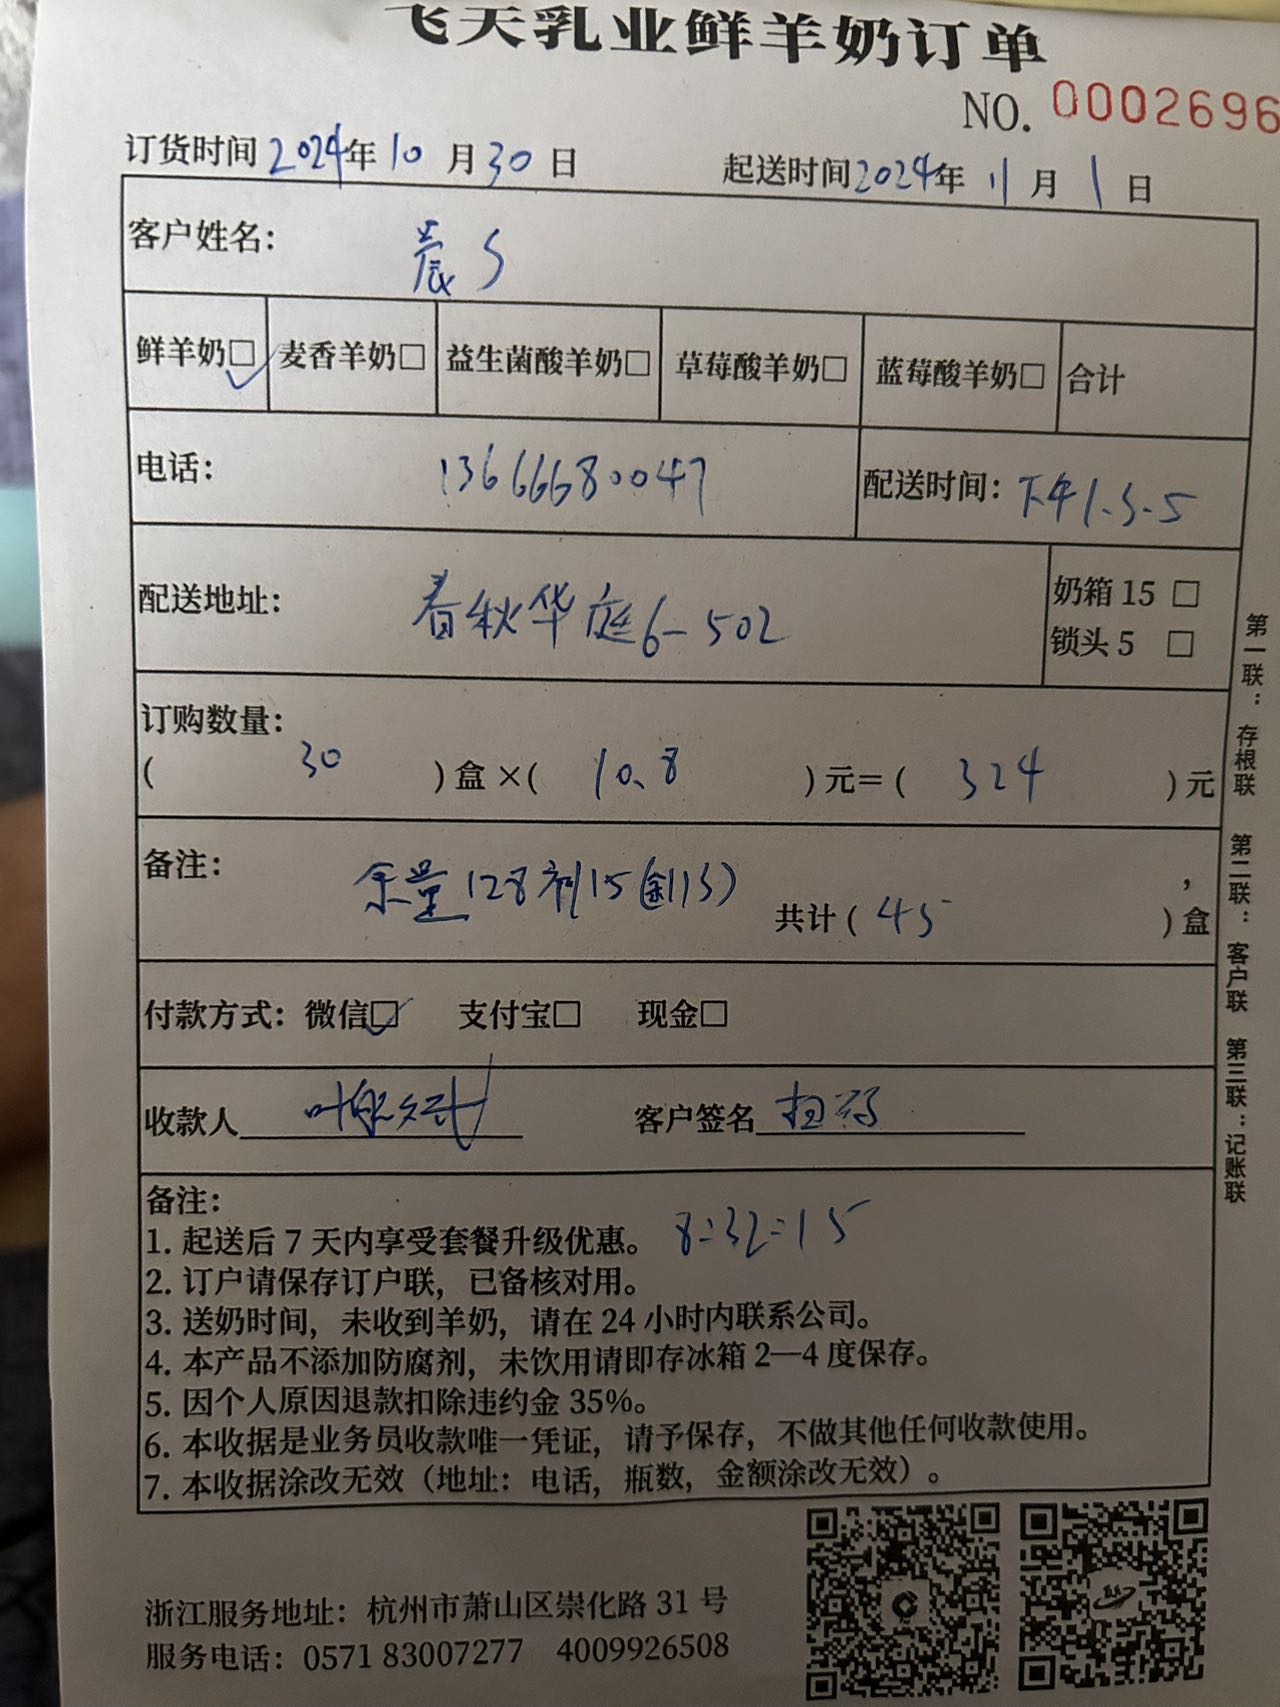 飞天乳业鲜羊奶订单
NO. 0002696
订货时间2024年10月30日 起送时间2024年11月1日
客户姓名:
鲜羊奶□ 麦香羊奶□ 益生菌酸羊奶□ 草莓酸羊奶□ 蓝莓酸羊奶□ 合计
电话: 13666680047 配送时间: 下午1.3.5
配送地址: 春秋华庭6-502 奶箱15 □
锁头5 □
订购数量:
( 30 )盒×( 10.8 )元=( 324 )元
备注: 余量128 15
共计( 45 )盒
付款方式: 微信□ 支付宝□ 现金□
收款人 客户签名 扫码
备注:
1. 起送后7天内享受套餐升级优惠。 8:32=15
2. 订户请保存订户联，已备核对用。
3. 送奶时间，未收到羊奶，请在24小时内联系公司。
4. 本产品不添加防腐剂，未饮用请即存冰箱2—4度保存。
5. 因个人原因退款扣除违约金35%。
6. 本收据是业务员收款唯一凭证，请予保存，不做其他任何收款使用。
7. 本收据涂改无效（地址：电话，瓶数，金额涂改无效）。
第一联：存根联 第二联：客户联 第三联：记账联
浙江服务地址：杭州市萧山区崇化路31号
服务电话：0571 83007277 4009926508